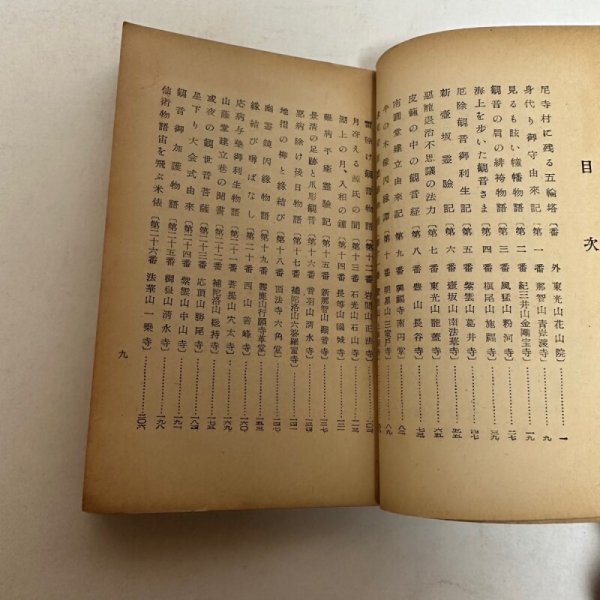 目次
尼寺村に残る五輪塔〔番 外 東光山花山院〕……一
身代り御守由來記〔第一番 那智山 青岩渡寺〕……九
見るも眩い幢幡物語〔第二番 紀三井山金剛宝寺〕……一九
観音の肩の緋袴物語〔第三番 風猛山 粉河寺〕……二七
海上を歩いた観音さま〔第四番 槇尾山 施福寺〕……三九
厄除観音御利生記〔第五番 紫雲山 葛井寺〕……四七
新壺坂霊験記〔第六番 壺坂山 南法華寺〕……五五
惡龍退治不思議の法力〔第七番 東光山 龍蓋寺〕……六五
皮籠の中の観音経〔第八番 豊山 長谷寺〕……七三
南圓堂建立由來記〔第九番 興福寺 南円堂〕……八一
明星山 三室戸寺〕……八九
雷除け観音物語〔第十二番 岩間山 正法寺〕
月冴える源氏の間〔第十三番 石光山 石山寺〕
湖上の月、入相の鐘〔第十四番 長等山 園城寺〕……一三一
難病平癒霊験記〔第十五番 新那智山 観音寺〕……一三七
景清の足跡と爪形観音〔第十六番 音羽山 清水寺〕
悪病除け後日物語〔第十七番 補陀洛山六波羅蜜寺〕
地摺の柳と縁結び〔第十八番 頂法寺 六角堂〕
幽霊鏡因縁物語〔第十九番 霊麀山行願寺革堂〕……一五三
縁結び噂ばなし〔第二十番 西山 善峰寺〕……一六〇
応病与薬御利生物語〔第二十一番 菩提山 穴太寺〕……一六九
山蔭堂建立巷の聞書〔第二十二番 補陀洛山 総持寺〕
或夜の観世音菩薩〔第二十三番 応頂山 勝尾寺〕……一八四
星下り大会式由來〔第二十四番 紫雲山 中山寺〕……一九一
観音御加護物語〔第二十五番 御嶽山 清水寺〕……一九八
仙術物語宙を飛ぶ米俵〔第二十六番 法華山 一乗寺〕……二〇六
九